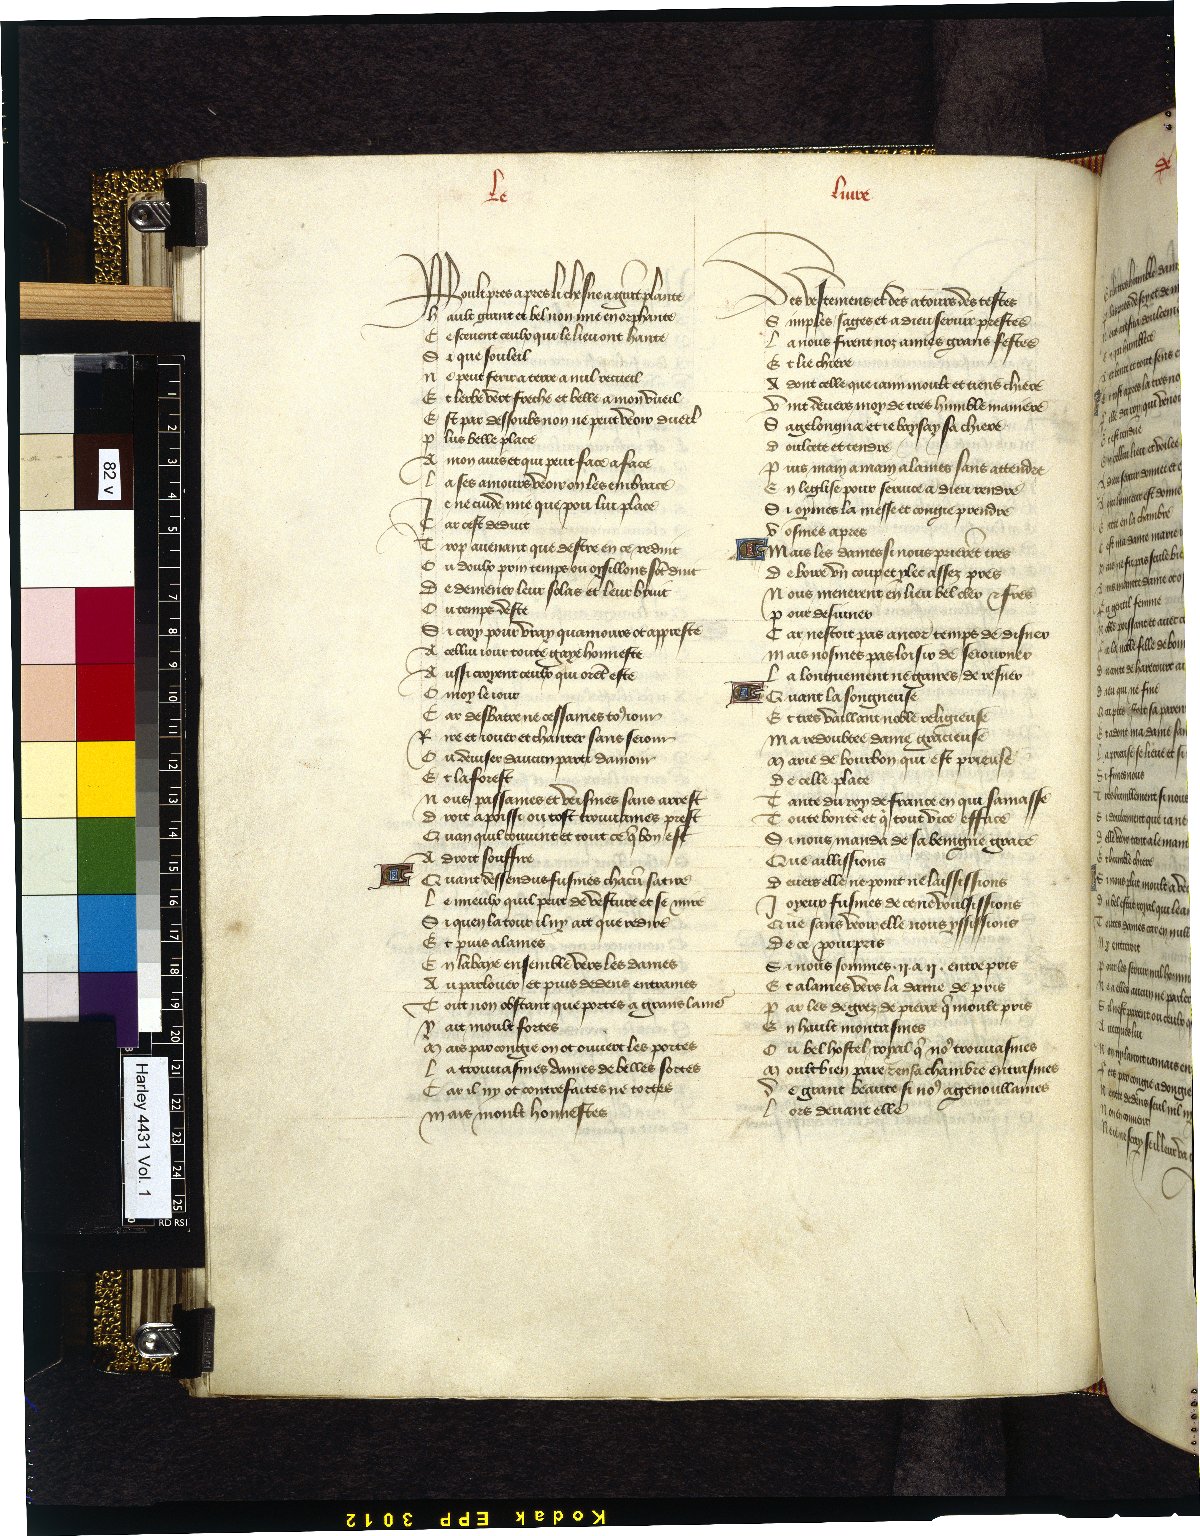 Le
liure
Moult pres apres li chesne a grāt plante
Hault grant et bel non mie en orphante
Ce sceuent ceulx qui le lieu ont hante
Si que souleil
Ne peut ferir a terre a nul recueil
Et lerbe vert freche et belle a mon vueil
Est par dessoubs non ne peut veoir dueil
Plus belle place
A mon auis et qui peut face a face
La ses amours veoir on les embrace
Je ne cuide mie que pou lui place
Car cest deduit
Trop auenant que destre en ce reduit
Ou doulx prin temps ou oysillons sōt duit
De demener leur solas et leur bruit
Ou temps deste
Si croy pour vray quamours ot appreste
A cellui iour toute gaye honneste
Aussi croyent ceulx qui orēt este
O moy le iour
Car desbatre ne cessames to9 iour
Rire et iouer et chanter sans seiour
Ou deuiser daucun parti damour
Et la forest
Nous passames et venismes sans arrest
Droit a poissi ou tost trouuames prest
Quan quil couuint et tout ce q̄ bon est
A droit souffire
Quant dessendus fusmes chacū satire
Le mieulx quil peut de vesture et se mire
Si quen la tout il ny ait que redire
Et puis alames
En labaye ensemble vers les dames
Au parlouer et puis dedens entrames
Tout non obstant que portes a grans lames
Y ait moult fortes
Mais par congie on ot ouuert les portes
La trouuasmes dames de belles sortes
Car il ny ot contrefaites ne tortes
Mais moult honnestes
Des vestemens et des atours des testes
Simples sages et a dieu seruir prestes
La nous firent noz amies grans festes
Et lie chiere
Adont celle que iaim moult et tiens chiere
Vint deuers moy de tres humble maniere
Sagelongna et ie baysay sa chiere
Doulcete et tendre
Puis main a main alames sans attendre
En leglise pour seruice a dieu rendre
Si oymes la messe et congie prendre
Vosmes apres
Mais les dames si nous prierēt tres
De boire vn coup et ylec assez pres
Nous menerent en lieu bel cler et fres
Pour desiuner
Car nestoit pas ancor temps de disner
Mais nosmes pas loisir de seiourner
La longuement ne gaires de resner
Quant la songneuse
Et tres vaillant noble religieuse
Ma redoubtee dame gracieuse
Marie de bourbon qui est prieuse
De celle place
Tante du roy de france en qui samasse
Toute bonte et q̄ tout vice efface
Si nous manda de sa benigne grace
Que aillissions
Deuers elle ne point ne laississions
Joyeux fusmes de ce ne voulsissions
Que sans veoir elle nous yssissions
De ce pourpris
Si nous sommes .ii. a .ii. entrepris
Et alames vers la dame de pris
Par les degrez de pierre q̄ moult pris
En hault montasmes
Ou bel hostel royal q̄ no9 trouuasmes
Moult bien pare en sa chambre entrasmes
De grant beaute si no9 agenoullames
Lors deuant elle
82 v
Harley 4431 Vol. 1
1
2
3
4
5
7
8
9
10
11
12
13
14
15
16
17
18
19
20
21
22
23
24
25
RD RSI
Kodak EPP 3012